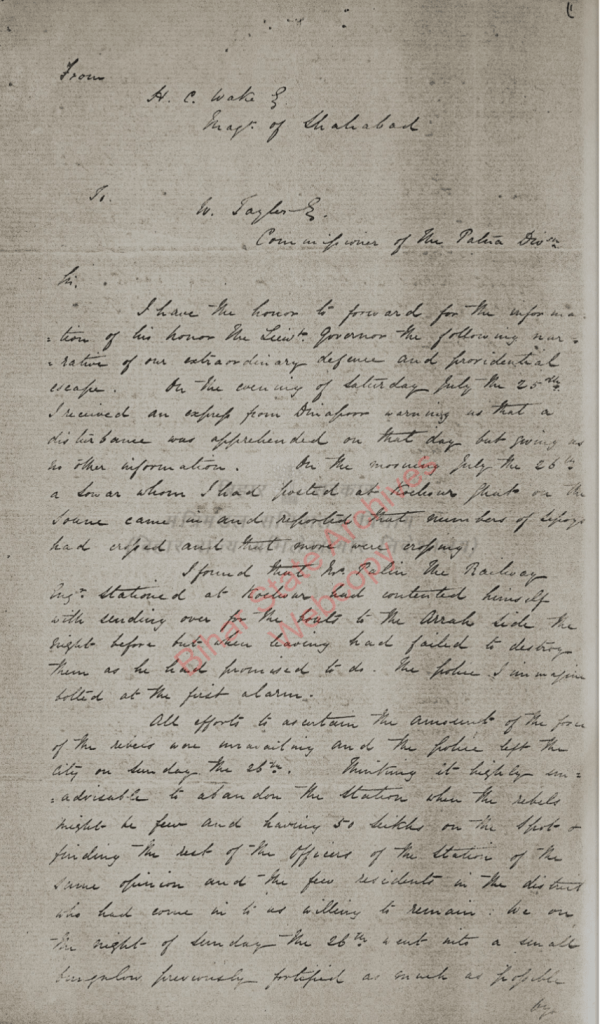 From
H. C. Wake Esq
Magt. of Shahabad
To
W. Tayler Esq.
Commissioner of the Patna Divn
Sir.
I have the honor to forward for the informa-
-tion of his honor the Lieut. Governor the following nar-
-rative of our extraordinary defence and providential
escape. On the evening of Saturday July the 25th
I received an express from Dinapoor warning us that a
disturbance was apprehended on that day but giving us
no other information. On the morning July the 26th
a Sowar whom I had posted at Koelwur Ghat on the
Soane came in and reported that numbers of Sepoys
had crossed and that more were crossing.
I found that Mr. Palin the Railway
Engr. stationed at Koelwar had contented himself
with sending over for the boats to the Arrah side the
night before but when leaving had failed to destroy
them as he had promised to do. The police I immagine
bolted at the first alarm.
All efforts to ascertain the amount of the force
of the rebels were unavailing and the police left the
city on Sunday the 26th. Thinking it highly un-
-advisable to abandon the station when the rebels
might be few and having 50 Seikhs on the spot &
finding the rest of the Officers of the Station of the
same opinion and the few residents in the district
who had come in to us willing to remain: We on
the night of Sunday the 26th went into a small
bungalow previously fortified as much as possible
by
Bihar State Archives
Web copy